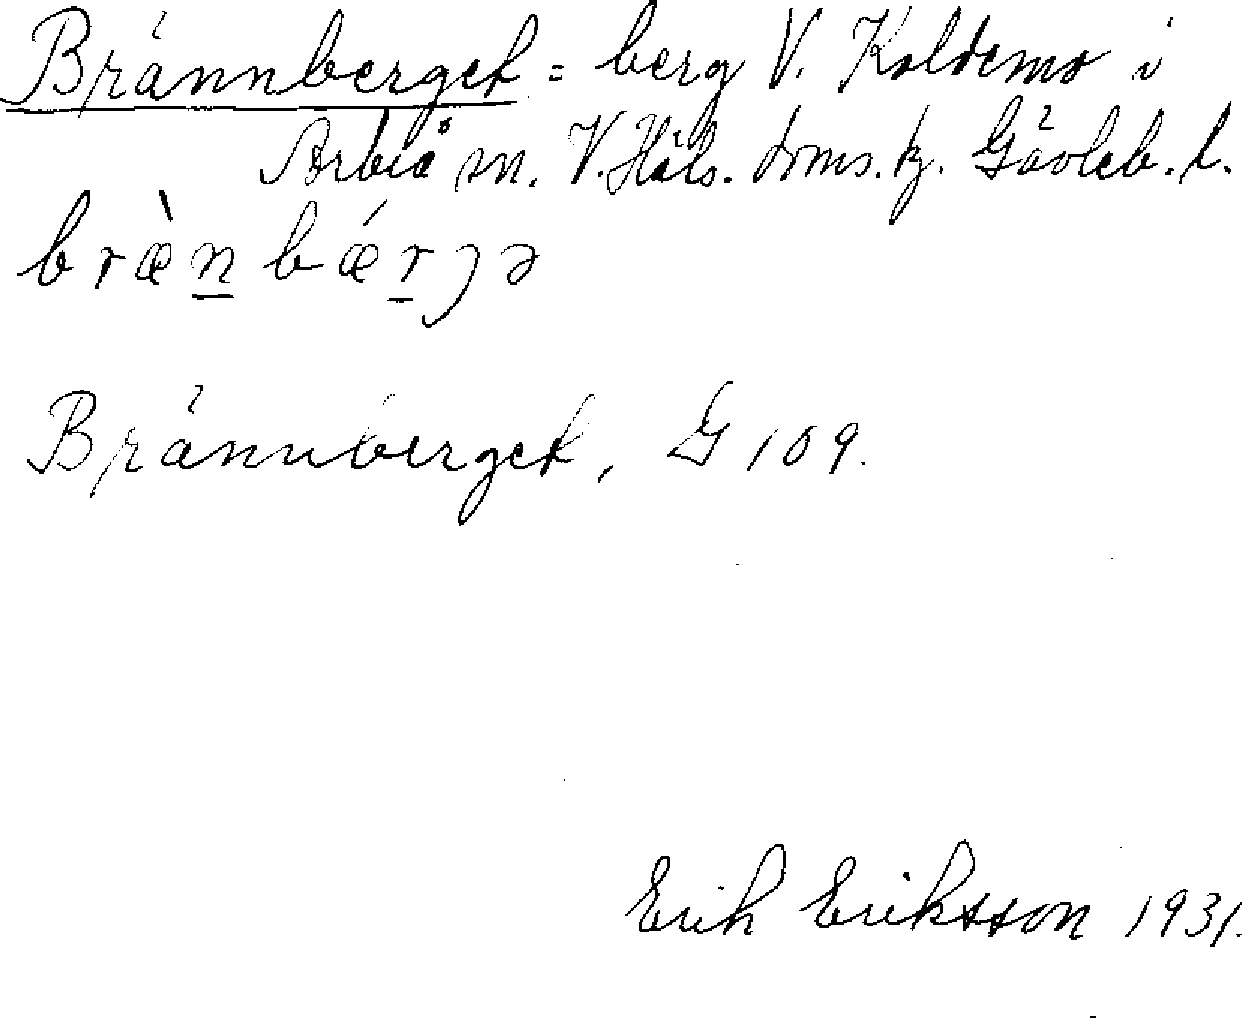 Brännberget = berg V. Koldemo i
Arbrå sn. V. Häls. doms. tg. Gävleb. l.
bræ̀n bǽrjə
Brännberget, G 109.
Erik Eriksson 1931.